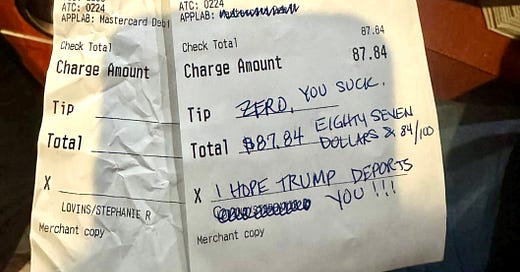 ATC: 0224
APPLAB: Mastercard Debi
Check Total
Charge Amount
Tip
Total
X
LOVINS/STEPHANIE R
Merchant copy
ATC: 0224
APPLAB:
Check Total 87.84
Charge Amount 87.84
Tip ZERO, YOU SUCK.
Total $87.84 EIGHTY SEVEN
DOLLARS & 84/100
X I HOPE TRUMP DEPORTS
YOU!!!
Merchant copy